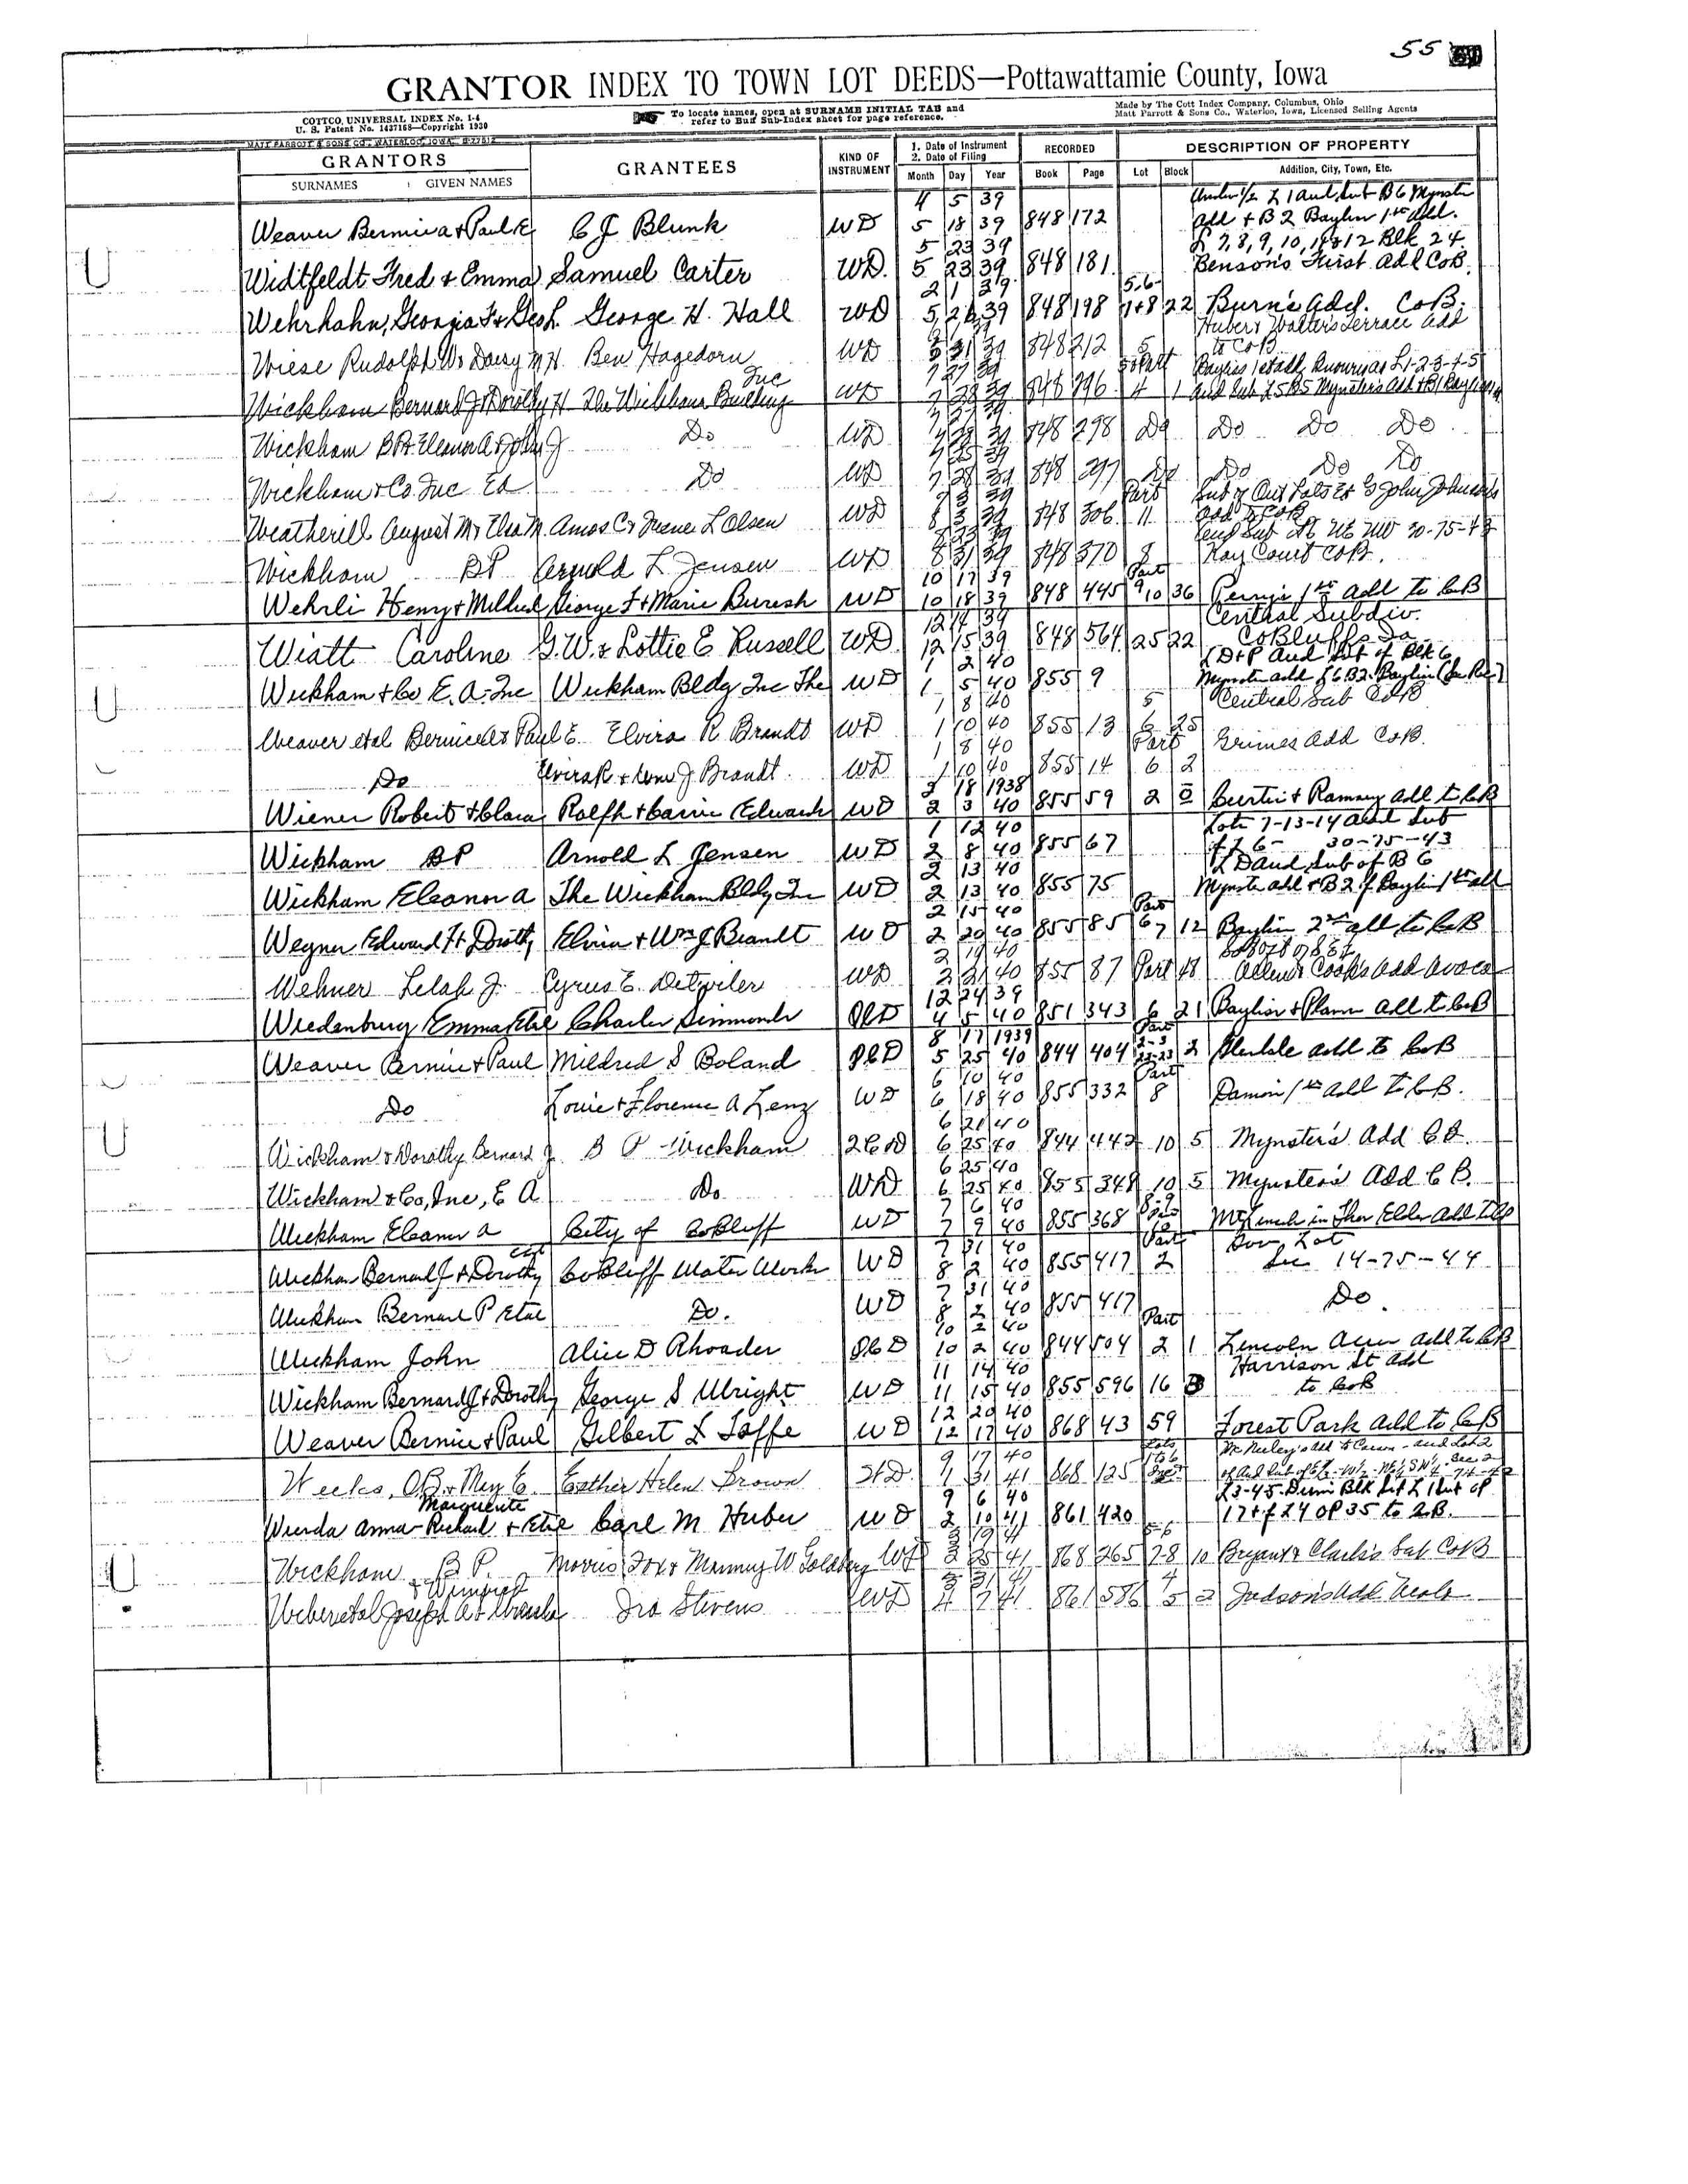 55
GRANTOR INDEX TO TOWN LOT DEEDS—Pottawattamie County, Iowa
COTTCO, UNIVERSAL INDEX No. 1-4
U. S. Patent No. 1437168—Copyright 1930
To locate names, open at SURNAME INITIAL TAB and
refer to Buff Sub-Index sheet for page reference.
Made by The Cott Index Company, Columbus, Ohio
Matt Parrott & Sons Co., Waterloo, Iowa, Licensed Selling Agents
MATT PARROTT & SONS CO., WATERLOO, IOWA
GRANTORS GRANTEES KIND OF INSTRUMENT 1. Date of Instrument 2. Date of Filing RECORDED DESCRIPTION OF PROPERTY
SURNAMES GIVEN NAMES Month Day Year Book Page Lot Block Addition, City, Town, Etc.
4 5 39 L 1 Aud Sub B 6 Mynster
Weaver Bernice a + Paul E C J Blunk WD 5 18 39 848 172 add + B 2 Bayliss 1st Add.
5 23 39 L 7, 8, 9, 10, 11 & 12 Blk 24
Widtfeldt Fred + Emma Samuel Carter WD. 5 23 39 848 181 Benson's First Add CoB.
2 1 39 5,6-
Wehrhahn, Georgia F + Geo h. George H. Hall WD 5 26 39 848 198 7+8 22 Burn's Add. CoB.
Huber & Walter's Terrace Add
Wiese Rudolph W & Daisy M H. Ben Hagedorn WD 5 31 39 848 212 5 to CoB
7 27 39 Part
Wickham Bernard J & Dorothy H The Wickham Building Inc WD 7 28 39 848 296 4 1 Aud Sub L 5 B5 Mynster's Add + B1 Bayliss
Wickham B P & Eleanor A & John J Do WD 7 28 39 848 298 Do Do Do Do
7 25 39
Wickham & Co. Inc EA Do WD 7 28 39 848 297 Do Do Do Do
Part Sub of Out Lots John Johnson's
Weatherill August M & Elva M. Amos C & Irene L Olsen WD 8 3 39 848 306 11 Add to CoB
Aud Sub NE NW 30-75-43
Wickham BP Arnold L Jensen WD 8 31 39 848 370 8 Kay Court CoB.
10 17 39 Part
Wehrli Henry + Mildred George F + Marie Buresh WD 10 18 39 848 445 9 10 36 Perrin 1st add to CoB
12 14 39 Central Subdiv.
Wiatt Caroline G.W. & Lottie E Russell WD 12 15 39 848 564 25 22 CoBluffs Ia
1 2 40 L D+P Aud Sub of Blk 6
Wickham + Co E. A. Inc Wickham Bldg Inc The WD 1 5 40 855 9 Mynster add & B2 Bayliss
1 8 40 5 Central Sub CoB
Weaver etal Bernice A & Paul E. Elvira R Brandt WD 1 10 40 855 13 6 25
1 8 40 Part Grimes Add CoB.
Do Elvira R + Wm J Brandt. WD 1 10 40 855 14 6 2
3 18 1938
Wiener Robert + Clara Ralph + Carrie Edwards WD 2 3 40 855 59 2 Curtis + Ramsey add to CoB
1 12 40 Lots 7-13-14 Aud Sub
Wickham BP Arnold L Jensen WD 2 8 40 855 67 of L 6- 30-75-43
2 13 40 L D Aud Sub of B 6
Wickham Eleanor a The Wickham Bldg Inc WD 2 13 40 855 75 Mynster add + B2 of Bayliss 1st add
2 15 40 Part
Wegner Edward H + Dorothy Elvira + Wm J Brandt WD 2 20 40 855 85 6 7 12 Bayliss 2nd add to CoB
2 19 40
Wehner Lelah J. Cyrus E. Detwiler WD 2 21 40 855 87 Part 48 Allen & Cook's Add Avoca
12 24 39
Wredenburg Emma Etal Charles Simmonds QCD 4 5 40 851 343 6 21 Bayliss + Palmer add to CoB
8 17 1939 Part 2-3
Weaver Bernice + Paul Mildred S Boland QCD 5 25 40 844 404 22-23 2 Glendale add to CoB
6 10 40 Part
Do Louie + Florence A Lenz WD 6 18 40 855 332 8 Damon 1st add to CoB.
6 21 40
Wickham & Dorothy Bernard J B P Wickham QCD 6 25 40 844 442 10 5 Mynster's Add CB
6 25 40
Wickham & Co, Inc, E A Do WD 6 25 40 855 348 10 5 Mynster's Add C B.
7 6 40 8-9
Wickham Eleanor a City of CoBluff WD 7 9 40 855 368 10
7 31 40 Part Gov Lot
Wickham Bernard J + Dorothy etal CoBluff Water Works WD 8 2 40 855 417 2 Sec 14-75-44
7 31 40
Wickham Bernard P Etal Do. WD 8 2 40 855 417 Do.
10 2 40 Part
Wickham John Alice D Rhoades QCD 10 2 40 844 504 2 1 Lincoln Ave add to CoB
11 14 40 Harrison St add
Wickham Bernard J + Dorothy George S Wright WD 11 15 40 855 596 16 B to CoB
12 20 40
Weaver Bernice + Paul Gilbert L Jaffe WD 12 17 40 868 43 59 Forest Park add to CoB
9 17 40 Lots
Weeks, O B & May E. Esther Helen Brown WD. 1 31 41 868 125 1 to 6
9 6 40
Wierda Anna-Richard + Etal Marguerite Carl M Huber WD 2 10 41 861 420 17 + of 24 OP 35 to CB.
3 19 41 5-6
Wickham B P. Morris Fox & Manny W Goldberg WD 3 25 41 868 265 7-8 10 Bryant & Clark's Sub CoB
3 31 41 4
Weber etal Joseph A & Ursula & Winifred Ira Stevens WD 4 7 41 861 586 5 2 Judson's Add Neola